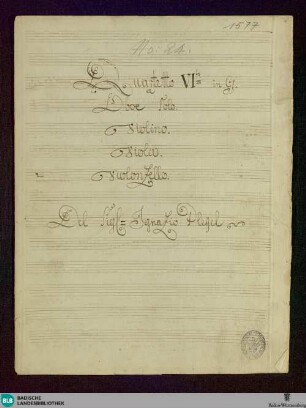 1577
No: 84.
Quartetto VI in G.
Oboe Solo.
Violino.
Viola.
Violonzello.
Del Sigl= Ignazio Pleyel
BLB BADISCHE
LANDESBIBLIOTHEK
Baden-Württemberg